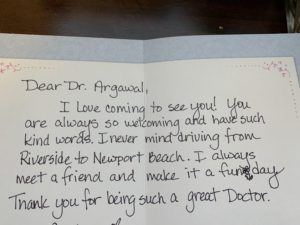 Dear Dr. Argawal,
I love coming to see you! You
are always so welcoming and have such
kind words. I never mind driving from
Riverside to Newport Beach. I always
meet a friend and make it a fun day
Thank you for being such a great Doctor.